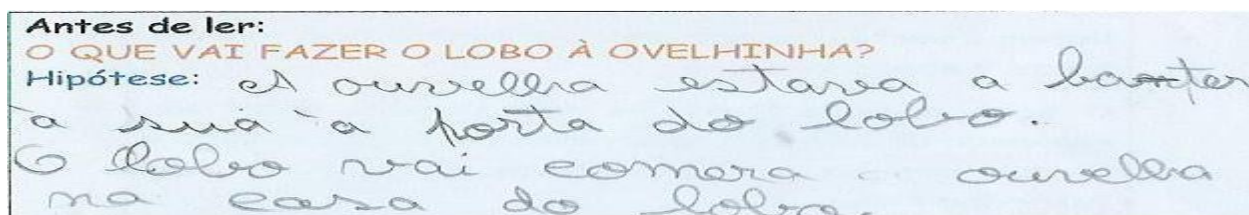 Antes de ler:
O QUE VAI FAZER O LOBO À OVELHINHA?
Hipótese: A ouvelha estava a bater
à sua à porta do lobo.
O lobo vai comera ouvelha
na casa do lobo.